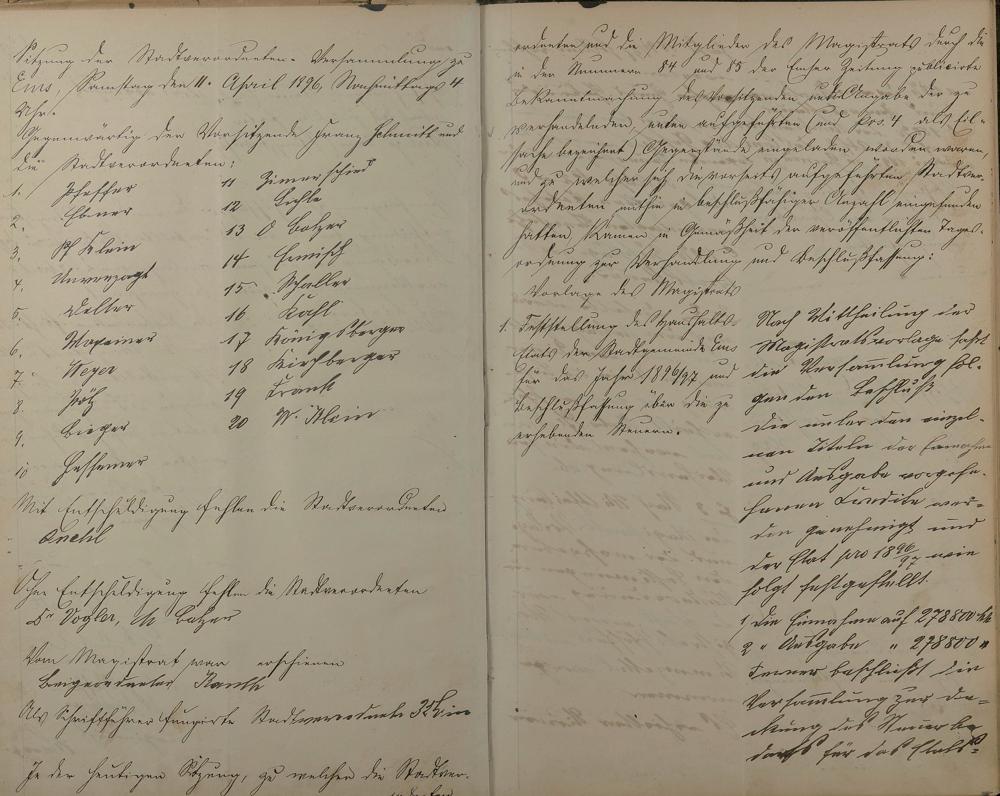 Sitzung der Stadtverordneten-Versammlung zu
Ems, Samstag den 11. April 1896, Nachmittags 4
Uhr.
Gegenwärtig der Vorsitzende Franz Schmitt und
die Stadtverordneten:
1. Pfeffer
2. Ebner
3. Ph Klein
4. Unverzagt
5. Weller
6.
7. Meyer
8.
9. Bieger
10 Hessemer
11 Zimmerschied
12
13 O Balzer
14
15. Schaller
16 Kahl
17 Königsberger
18 Kirchberger
19 Frank
20 W. Klein
Mit Entschuldigung fehlen die Stadtverordneten
Ohne Entschuldigung fehlen die Stadtverordneten
Dr Vogler, M Balzer
Vom Magistrat war erschienen
Beigeordneter Kauth
Als Schriftführer fungirte Stadtverordneter
In der heutigen Sitzung, zu welcher die Stadtver-
ordneten
ordneten und die Mitglieder des Magistrats durch die
in den Nummern 84 und 85 der Emser Zeitung publicirte
Bekanntmachung des Vorsitzenden unter Angabe der zu
verhandelnden, unten aufgeführten (und Pos. 4 als Eil-
sache bezeichnet) Gegenstände eingeladen worden waren,
und zu welcher sich die vorseits aufgeführten Stadtver-
ordneten mithin in beschlußfähiger Anzahl eingefunden
hatten, kamen in Gemäßheit der veröffentlichten Tages-
ordnung zur Verhandlung und Beschlußfassung:
Vorlage des Magistrats
1. Feststellung des Haushalts-
Etats der Stadtgemeinde Ems
für das Jahr 1896/97 und
Beschlußfassung über die zu
erhebenden Steuern.
Nach Mittheilung der
Magistratsvorlage faßt
die Versammlung fol-
genden Beschluß
Die unter den einzel-
nen Titeln der Einnahme
und Ausgabe vorgese-
henen Credite wer-
den genehmigt und
der Etat pro 1896/97 wie
folgt festgestellt.
1, die Einnahme auf 278800 Mk
2 " Ausgabe " 278800 "
Ferner beschließt die
Versammlung zur De-
ckung des Steuerbe-
darfs für das Etats-